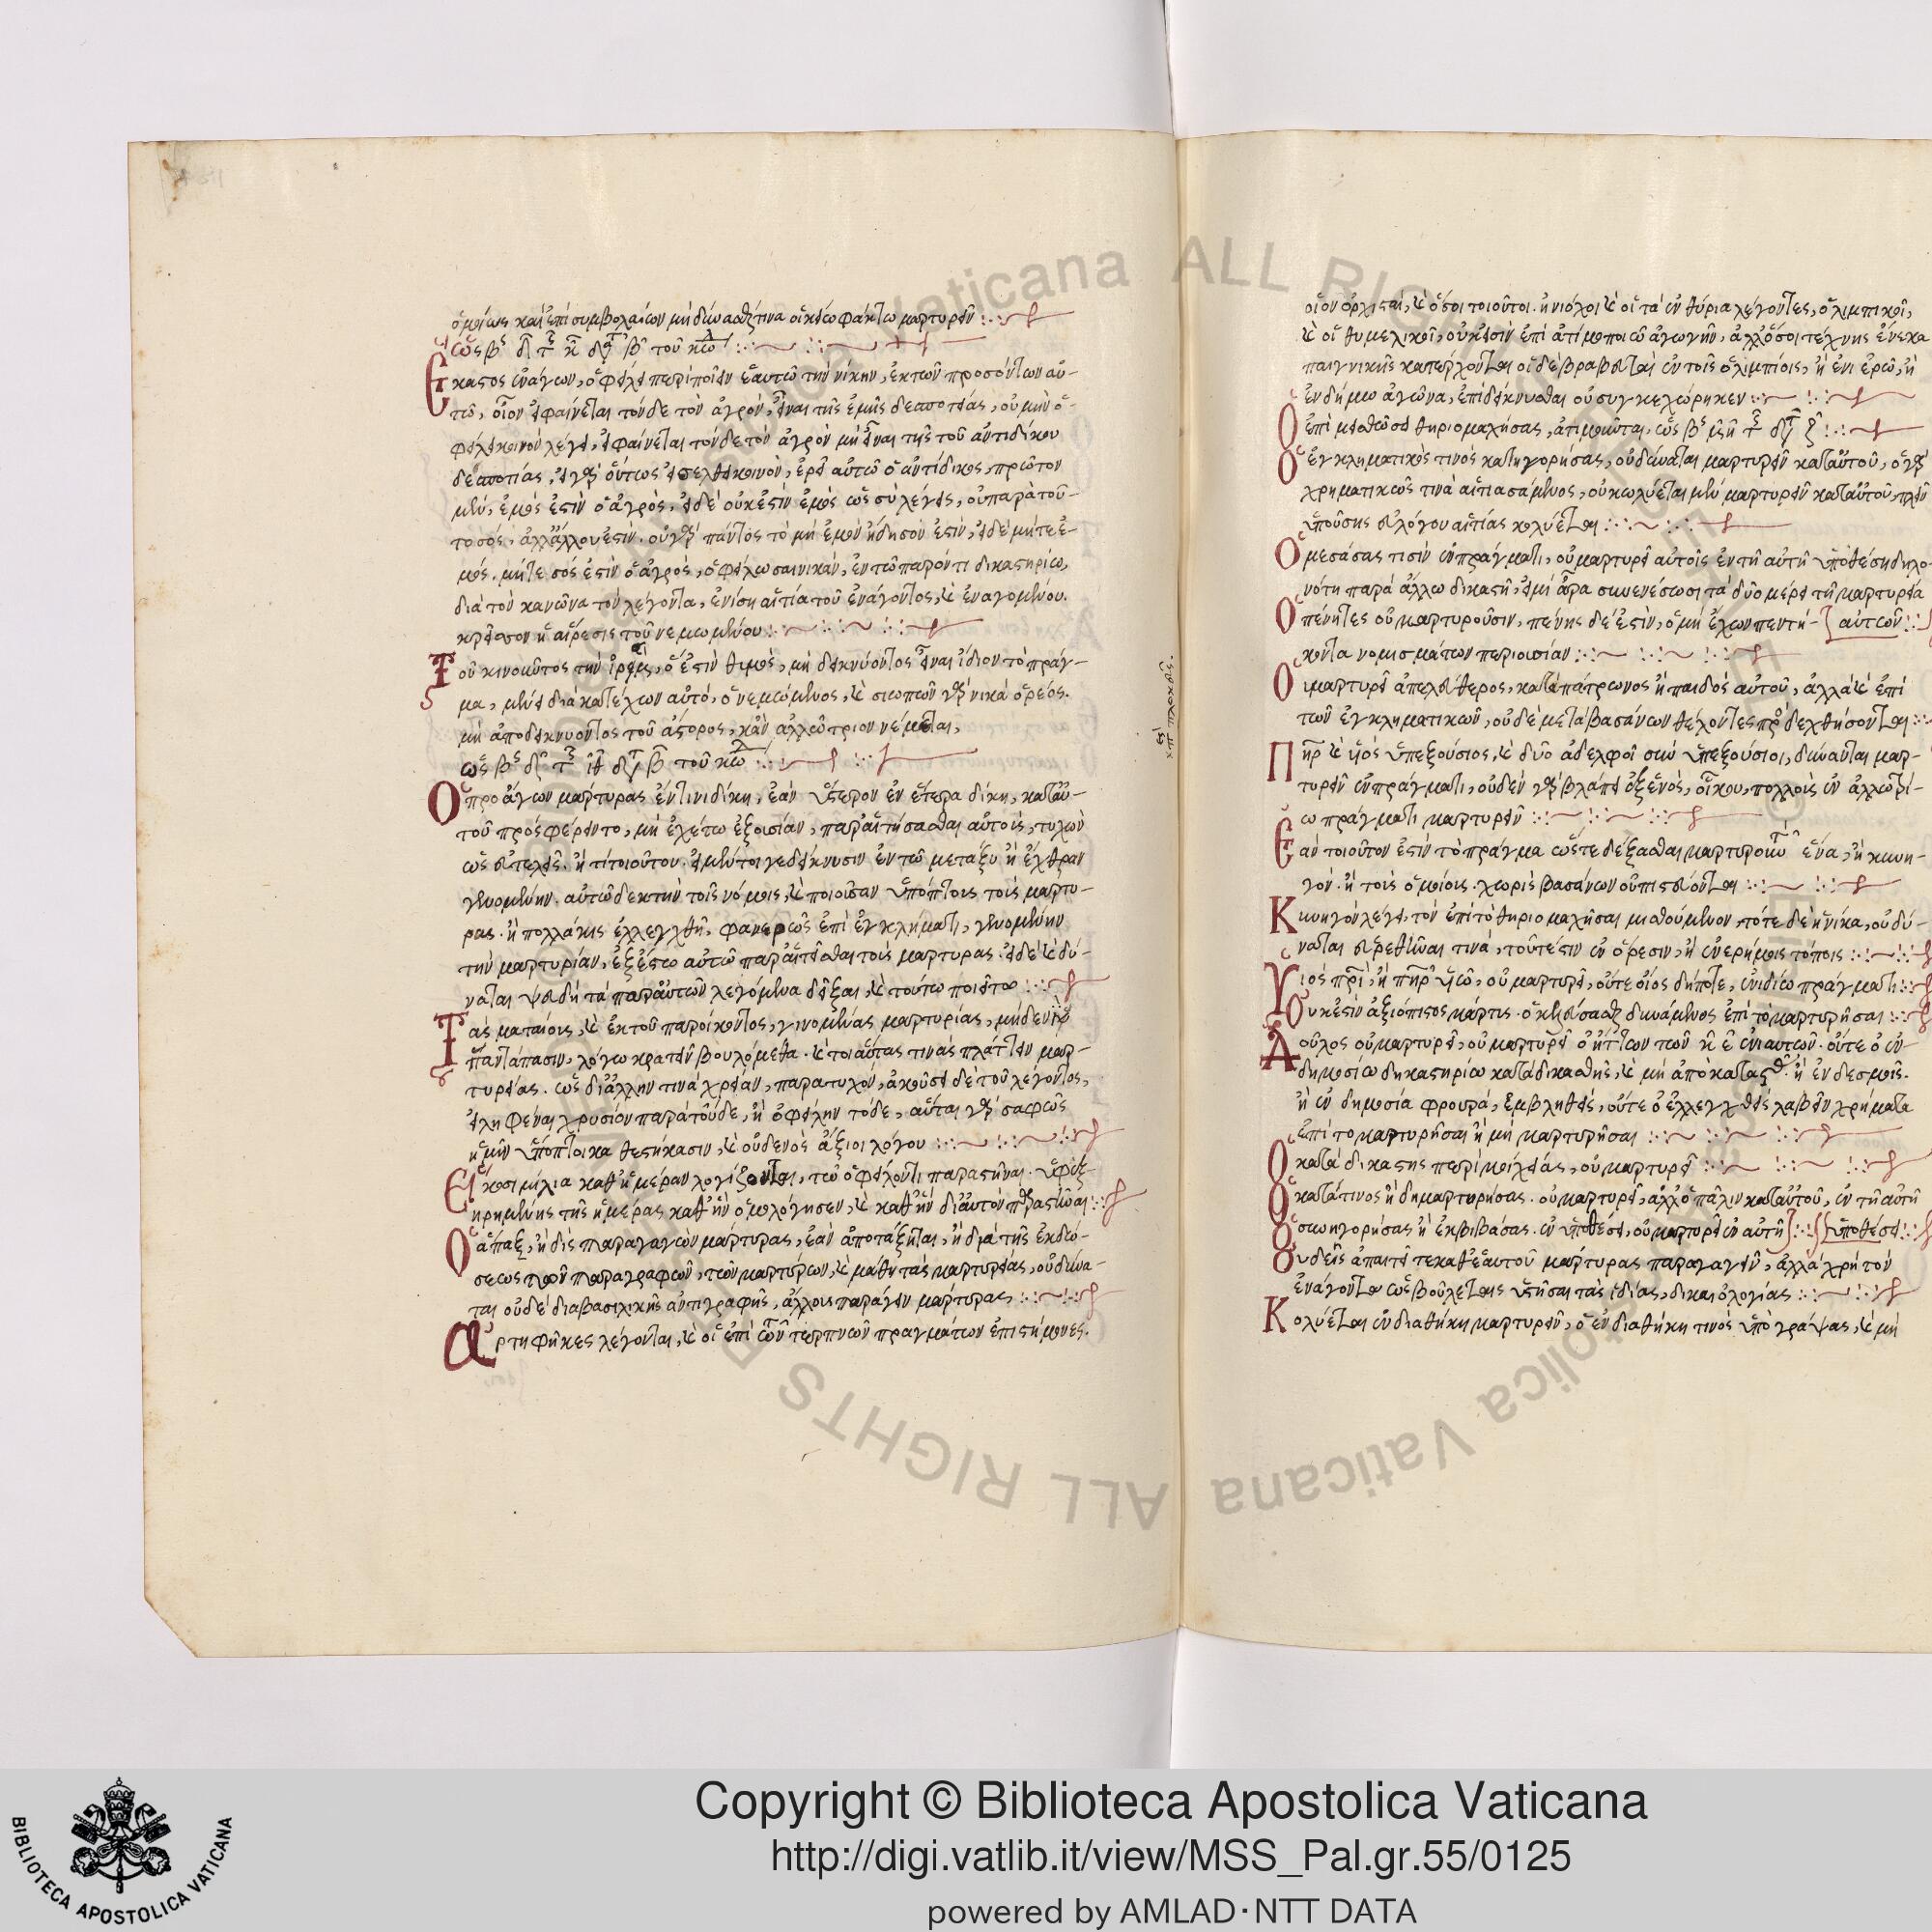 ὁμοίως καὶ ἐπὶ συμβολαίων μὴ δύνασθαί τινα οἰκείω φάκτω μαρτυρεῖν
ἕκαστος ἐνάγων, ὀφείλει περιποιεῖν ἑαυτῶ τὴν νίκην, ἐκ τῶν προσόντων αὐ-
τῶ, οἷον εἰ φαίνεται τόνδε τὸν ἀγρὸν, εἶναι τῆς ἐμῆς δεσποτείας, οὐ μὴν ὀ-
φείλει κοινὸν λέγει, εἰ φαίνεται τόνδε τὸν ἀγρὸν μὴ εἶναι τῆς τοῦ ἀντιδίκου
δεσποτίας, εἰ γὰρ οὕτως ἐρεῖ αὐτῶ ὁ ἀντίδικος, πρῶτον
μὲν, ἐμός ἐστὶν ὁ ἀγρὸς, εἰ δὲ οὐκ ἐστὶν ἐμὸς ὡς σὺ λέγεις, οὐ παρὰ τοῦ-
το σός, ἀλλ' ἄλλου ἐστὶν. οὐ γὰρ πάντως τὸ μὴ ἐμὸν ἤδη σόν ἐστὶν, εἰ δὲ μήτε ἐ-
μός. μήτε σός ἐστὶν ὁ ἀγρὸς, ὀφείλω σαι νικὰν, ἐν τῶ παρόντι δικαστηρίω,
διὰ τὸν κανῶνα τὸν λέγοντα, ἐν ἴση αἰτία τοῦ ἐνάγοντος, καὶ ἐναγομένου.
κρεῖσσον ἡ αἵρεσις τοῦ νεμωμένου
τοῦ κινοῦντος τὴν ὁ ἐστὶν θυμὸς, μὴ δεικνύοντος εἶναι ἴδιον τὸ πράγ-
μα, μένει διακατέχων αὐτὸ, ὁ νεμώμενος, καὶ σιωπῶν γὰρ νικὰ ὁ ρέος.
μὴ ἀποδεικνύοντος τοῦ ἄκτορος, κἂν ἀλλώτριον νέμεται,
ὁ προάγων μάρτυρας ἔν τινι δίκη, ἐὰν ὕστερον ἐν ἑτέρα δίκη, κατ' αὐ-
τοῦ προσφέροντο, μὴ ἐχέτω ἐξουσίαν, παραιτήσασθαι αὐτοὺς, τυχὼν
ὡς εὐτελεῖς. ἢ τί τοιοῦτον. εἰ μέν τοι γε δείκνυσιν ἐν τῶ μεταξὺ ἢ ἔχθραν
γενομένην. αὐτῶ δεκτὴν τοῖς νόμοις, καὶ ποιοῦσαν ὑπόπτους τοὺς μάρτυ-
ρας. ἢ πολλάκις ἐλλεγχθῆ, φανερῶς ἐπὶ ἐγκλήματι, γενομένην
τὴν μαρτυρίαν, ἐξέστω αὐτῶ παραιτεῖσθαι τοὺς μάρτυρας. εἰ δὲ καὶ δύ-
ναται ψευδῆ τὰ παρ' αὐτῶν λεγόμενα δεῖξαι, καὶ τούτω ποιείτω
τὰς ματαίους, καὶ ἐκ τοῦ παροίκοντος, γινομένας μαρτυρίας, μηδενὶ
παντάπασιν, λόγω κρατεῖν βουλόμεθα. καὶ τοιαύτας τινὰς πλάττειν μαρ-
τυρείας. ὡς δι' ἄλλην τινὰ χρείαν, παρατυχὸν, ἀκοῦσει δὲ τοῦ λέγοντος,
εἰληφέναι χρυσίον παρὰ τοῦδε, ἢ ὀφείλην τόδε, αὗται γὰρ σαφῶς
ἡμῖν ὕποπτοι καθεστήκασιν, καὶ οὐδενὸς ἄξιοι λόγου
εἴκοσι μίλια καθ' ἡμέραν λογίζονται, τῶ ὀφείλοντι παραστῆναι.
ηρημένης τῆς ἡμέρας καθ' ἣν ὁμολόγησεν, καὶ καθ' ἣν δι' αὐτὸν
ὁ ἅπαξ, ἢ δὶς παραγαγὼν μάρτυρας, ἐὰν ἀποτάξηται, ἢ διὰ τῆς ἐκδώ-
σεως τῶν παραγραφῶν, τῶν μαρτύρων, καὶ μάθη τὰς μαρτυρείας, οὐ δύνα-
ται οὐδὲ διὰ βασιλικῆς ἀντιγραφῆς, ἄλλους παράγειν μάρτυρας
ἀρτηφῆκες λέγονται, καὶ οἱ ἐπὶ τῶν τερπνῶν πραγμάτων ἐπιστήμονες.
οἷον ὀρχισταὶ, καὶ ὅσοι τοιοῦτοι. ἡνιόχοι καὶ οἱ τὰ ἐν θύρια λέγοντες, ὀλιμπικοῖ,
καὶ οἱ θυμελικοῖ, οὐκ εἰσὶν ἐπὶ ἀτίμοποιῶ ἀγωγὴν, ἀλλ' ὅσοι τέχνης ἕνεκα
παιγνικῆς κατέρχονται οἱ δὲ βραβεύται ἐν τοῖς ὀλιμπίοις, ἢ ἐνι ἐρῶ, ἢ
ἐν δήμω ἀγῶνα, ἐπιδείκνυσθαι οὐ συγκεχώρηκεν
ὁ ἐπὶ μισθῶσει θηριομαχήσας, ἀτιμοῦται,
ὁ ἐγκληματικὸς τινὸς κατηγορήσας, οὐ δύναται μαρτυρεῖν κατ' αὐτοῦ, ὁ γὰρ
χρηματικῶς τινὰ αἰτιασάμενος, οὐ κωλύεται μὲν μαρτυρεῖν κατ' αὐτοῦ, πλὴν
ὑπούσης εὐλόγου αἰτίας κολύεται
ὁ μεσάσας τισὶν ἐν πράγματι, οὐ μαρτυρεῖ αὐτοῖς ἐν τῆ αὐτῆ ὑποθέση δηλο-
νότη παρὰ ἄλλω δικαστῆ, εἰ μὴ ἄρα συνενέσωσι τὰ δύο μέρει τῆ μαρτυρεία
οἱ πένητες οὐ μαρτυροῦσιν, πένης δέ ἐστὶν, ὁ μὴ ἔχων πεντή- αὐτῶν
κοντα νομισμάτων περιουσίαν
οὐ μαρτυρεῖ ἀπελεύθερος, κατὰ πάτρωνος ἢ παιδὸς αὐτοῦ, ἀλλὰ καὶ ἐπὶ
τῶν ἐγκληματικῶν, οὐδὲ μετὰ βασάνων θέλοντες προσδεχθήσονται
πὴρ καὶ υἱὸς ὑπεξούσιος, καὶ δύο ἀδελφοῖ συν ὑπεξούσιοι, δύνανται μαρ-
τυρεῖν ἐν πράγματι, οὐδὲν γὰρ βλάπτει ἐξ ἑνὸς, οἴκου, πολλοὺς ἐν ἀλλωτρί-
ω πράγματι μαρτυρεῖν
ἐὰν τοιοῦτον ἐστὶν τὸ πράγμα ὥστε δέξασθαι μαρτυρο ἕνα, ἢ κυνη-
γὸν. ἢ τοὺς ὁμοίους. χωρὶς βασάνων οὐ πιστεύονται
κυνηγὸν λέγει, τὸν ἐπὶ τὸ θηριομαχῆσαι μισθούμενον, τότε δὲ ἡνίκα, οὐ δύ-
ναται εὑρεθῆναι τινὰ, τοῦτέστιν ἐν ὄρεσιν, ἢ ἐν ερήμοις τόποις
υἱὸς πρὶ, ἢ πὴρ υἱῶ, οὐ μαρτυρεῖ, οὔτε οἷος δήποτε, ἐν ιδίω πράγματι
οὐκ ἐστὶν ἀξιόπιστος μάρτις. ὁ κελεύσασθαι δυνάμενος ἐπὶ τὸ μαρτυρῆσαι
δοῦλος οὐ μαρτυρεῖ, οὐ μαρτυρεῖ ὁ ἥττων τῶν κ ε ἐνιαυτῶν. οὔτε ὁ ἐν
δημοσίω δηκαστηρίω καταδικασθῆς, καὶ μὴ ἀποκαταστ ἢ ἐν δεσμοῖς.
ἢ ἐν δημοσία φρουρά, ἐμβληθεὶς, οὔτε ὁ ἐλλεγχθεὶς λαβεῖν χρήματα
ἐπὶ το μαρτυρῆσαι ἢ μὴ μαρτυρῆσαι
ὁ κατάδικαστης περὶ μοιχείας, οὐ μαρτυρεῖ
ὁ κατά τινος ἤδη μαρτυρήσας. οὐ μαρτυρεῖ, ἀλλ' ὁ πάλιν κατ' αὐτοῦ, ἐν τῆ αὐτῆ
ὁ συνηγορήσας ἢ ἐκβιβάσας. ἐν ὑποθέσει, οὐ μαρτυρεῖ ἐν αὐτῆ ὑποθέσει
οὐδεὶς ἀπαιτεῖτε καθ' ἑαυτοῦ μάρτυρας παραγαγεῖν, ἀλλὰ χρὴ τὸν
ἐνάγοντα ὡς βούλεται συστῆσαι τὰς ἰδίας, δικαιολογίας
κολύεται ἐν διαθήκη μαρτυρεῖν, ὁ ἐν διαθήκη τινὸς ὑπογράψας, καὶ μὴ
Copyright © Biblioteca Apostolica Vaticana
http://digi.vatlib.it/view/MSS_Pal.gr.55/0125
powered by AMLAD·NTT DATA
BIBLIOTECA APOSTOLICA VATICANA